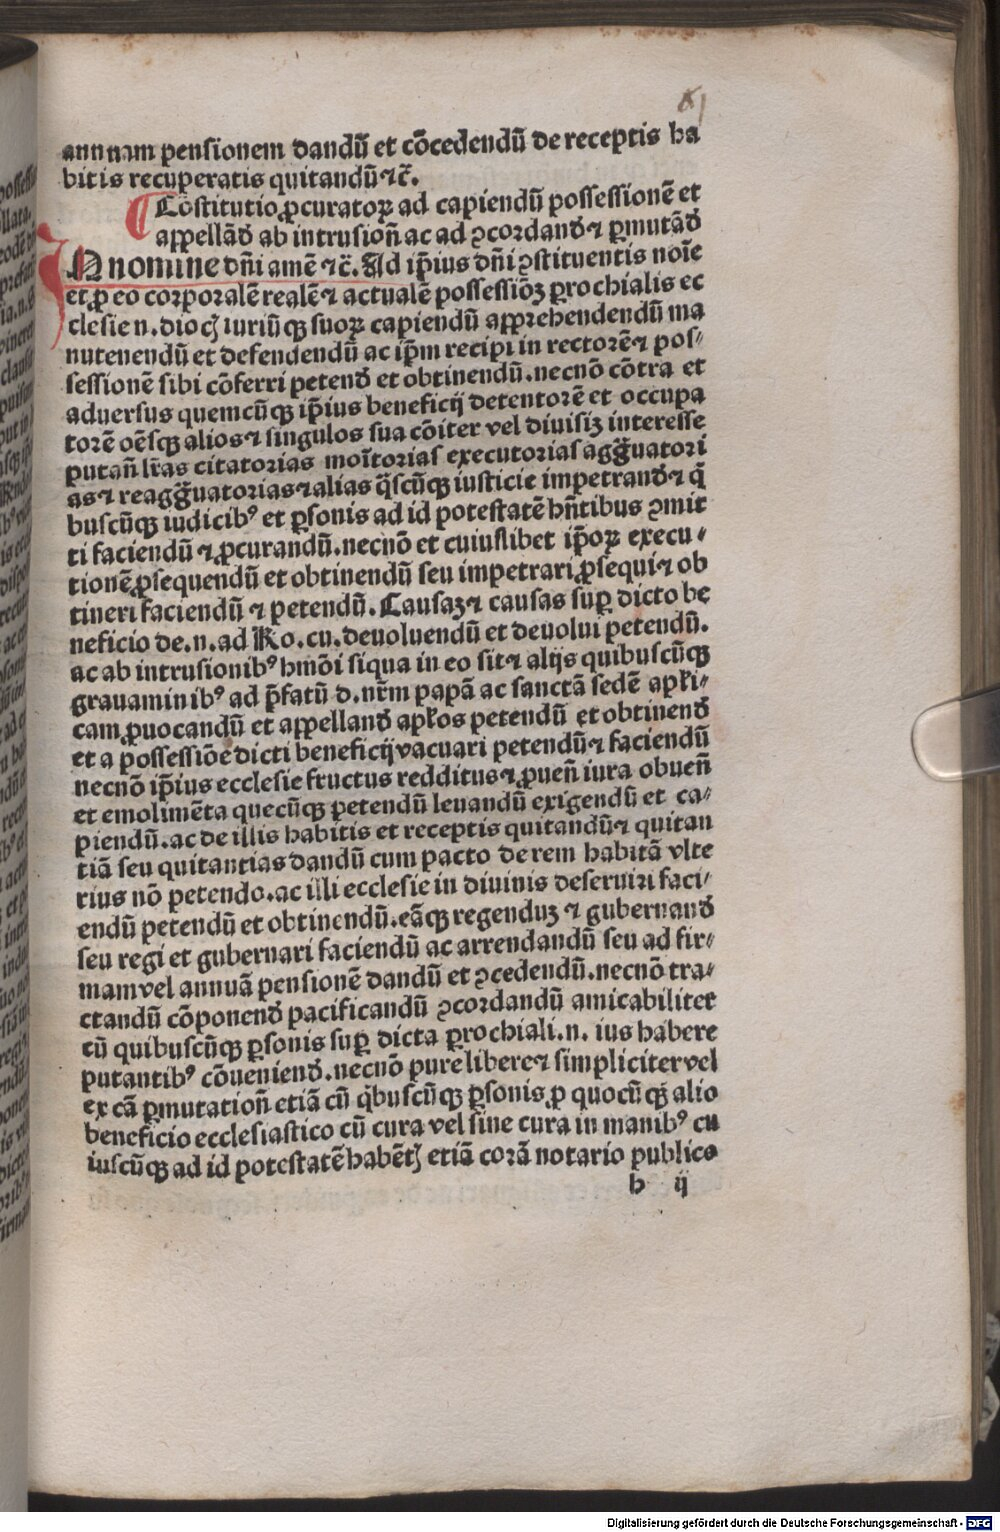 annuam pensionem dandū et cōcedendū de receptis ha
bitis recuperatis quitandū ⁊c̄.
Cōstitutio ꝓcuratoꝝ ad capiendū possessionē et
appellād̄ ab intrusioñ ac ad ꝯcordand̄ ⁊ ꝑmutād̄
In nomine dñi amē ⁊c̄. Ad ip̄ius dñi ꝯstituentis noīe
et ꝓ eo corporalē realē ⁊ actualē possessiōꝫ ꝑrochialis ec
clesie n. dioc̄ iuriūqꝫ suoꝝ capiendū apprehendendū ma
nutenendū et defendendū ac ip̄m recipi in rectorē ⁊ pos⸗
sessionē sibi cōferri petend̄ et obtinendū. necnō cōtra et
aduersus quemcūqꝫ ip̄ius beneficij detentorē et occupa
torē oēsqꝫ alios ⁊ singulos sua cōiter vel diuisiꝫ interesse
putañ lr̄as citatorias moītorias executorias agg̃uatori
as ⁊ reagg̃uatorias ⁊ alias q̄scūqꝫ iusticie impetrand̄ ⁊ q̄
buscūqꝫ iudicibꝰ et ꝑsonis ad id potestatē hñtibus ꝯmit
ti faciendū ⁊ ꝓcurandū. necnō et cuiuslibet ip̄oꝝ execu⸗
tionē ꝓsequendū et obtinendū seu impetrari ꝓsequi ⁊ ob
tineri faciendū ⁊ petendū. Causaꝫ ⁊ causas suꝑ dicto be
neficio de. n. ad Ro. cu. deuoluendū et deuolui petendū.
ac ab intrusionibꝰ hmōi siqua in eo sit ⁊ alijs quibuscūqꝫ
grauaminibꝰ ad p̄fatū d. nr̄m papā ac sanctā sedē apłi⸗
cam ꝓuocandū et appelland̄ apłos petendū et obtinend̄
et a possessiōe dicti beneficij vacuari petendū ⁊ faciendū
necnō ip̄ius ecclesie fructus redditus ⁊ ꝓueñ iura obueñ
et emolimēta quecūqꝫ petendū leuandū exigendū et ca⸗
piendū. ac de illis habitis et receptis quitandū ⁊ quitan
tiā seu quitantias dandū cum pacto de rem habitā vlte
rius nō petendo. ac illi ecclesie in diuinis deseruiri faci⸗
endū petendū et obtinendū. eāqꝫ regenduꝫ ⁊ gubernand̄
seu regi et gubernari faciendū ac arrendandū seu ad fir⸗
mam vel annuā pensionē dandū et ꝯcedendū. necnō tra⸗
ctandū cōponend̄ pacificandū ꝯcordandū amicabiliter
cū quibuscūqꝫ ꝑsonis suꝑ dicta ꝑrochiali. n. ius habere
putantibꝰ cōueniend̄. necnō pure libere ⁊ simpliciter vel
ex cā ꝑmutatioñ etiā cū q̇buscūqꝫ ꝑsonis ꝓ quocūqꝫ alio
beneficio ecclesiastico cū cura vel sine cura in manibꝰ cu
iuscūqꝫ ad id potestatē habēt̄ etiā corā notario publico
b ij
Digitalisierung gefördert durch die Deutsche Forschungsgemeinschaft - DFG